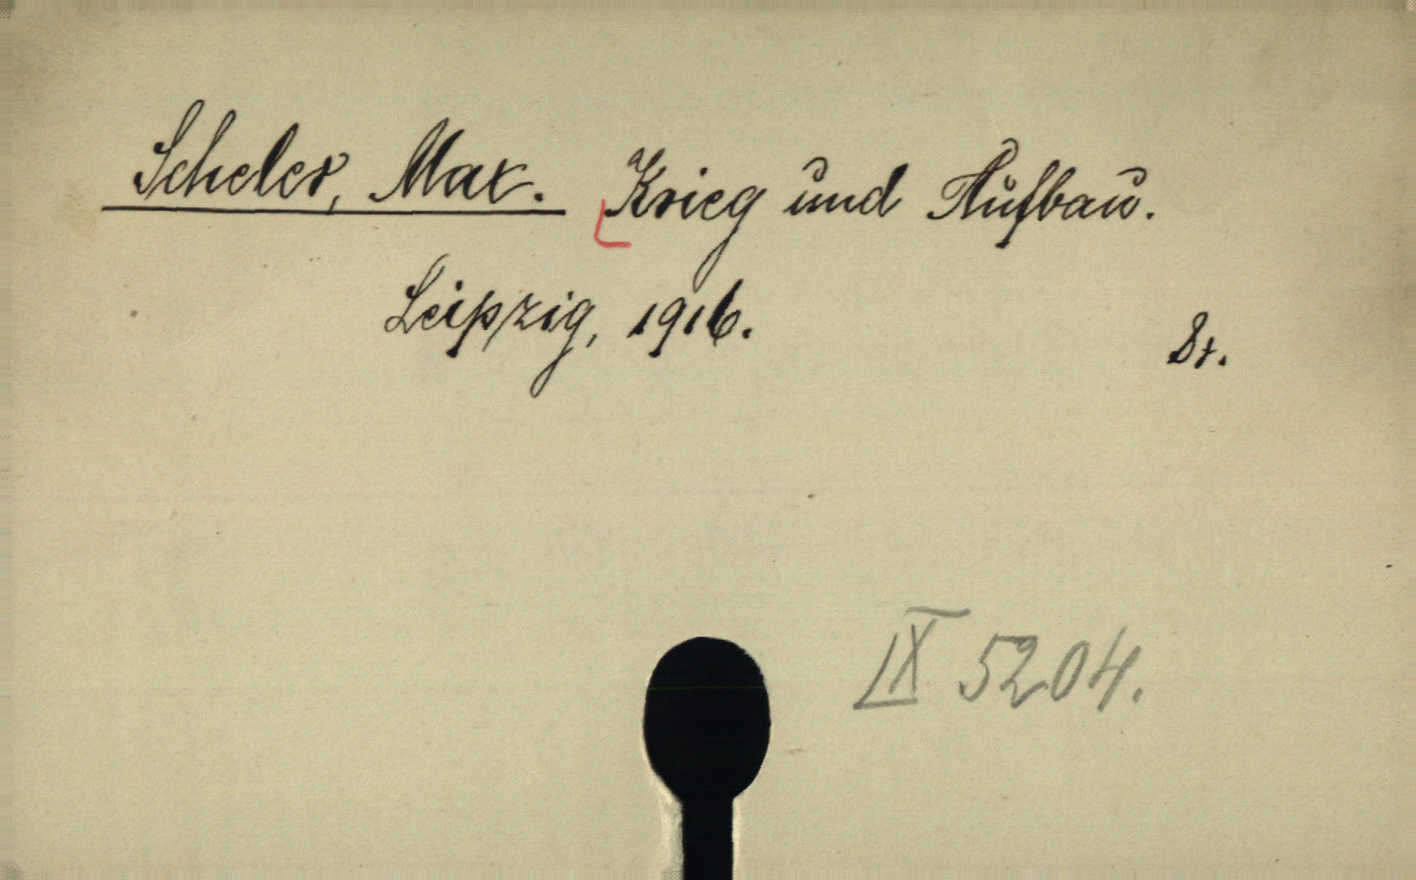 Scheler, Max. Krieg und Aufbau.
Leipzig, 1916.
8r.
IX 5204.